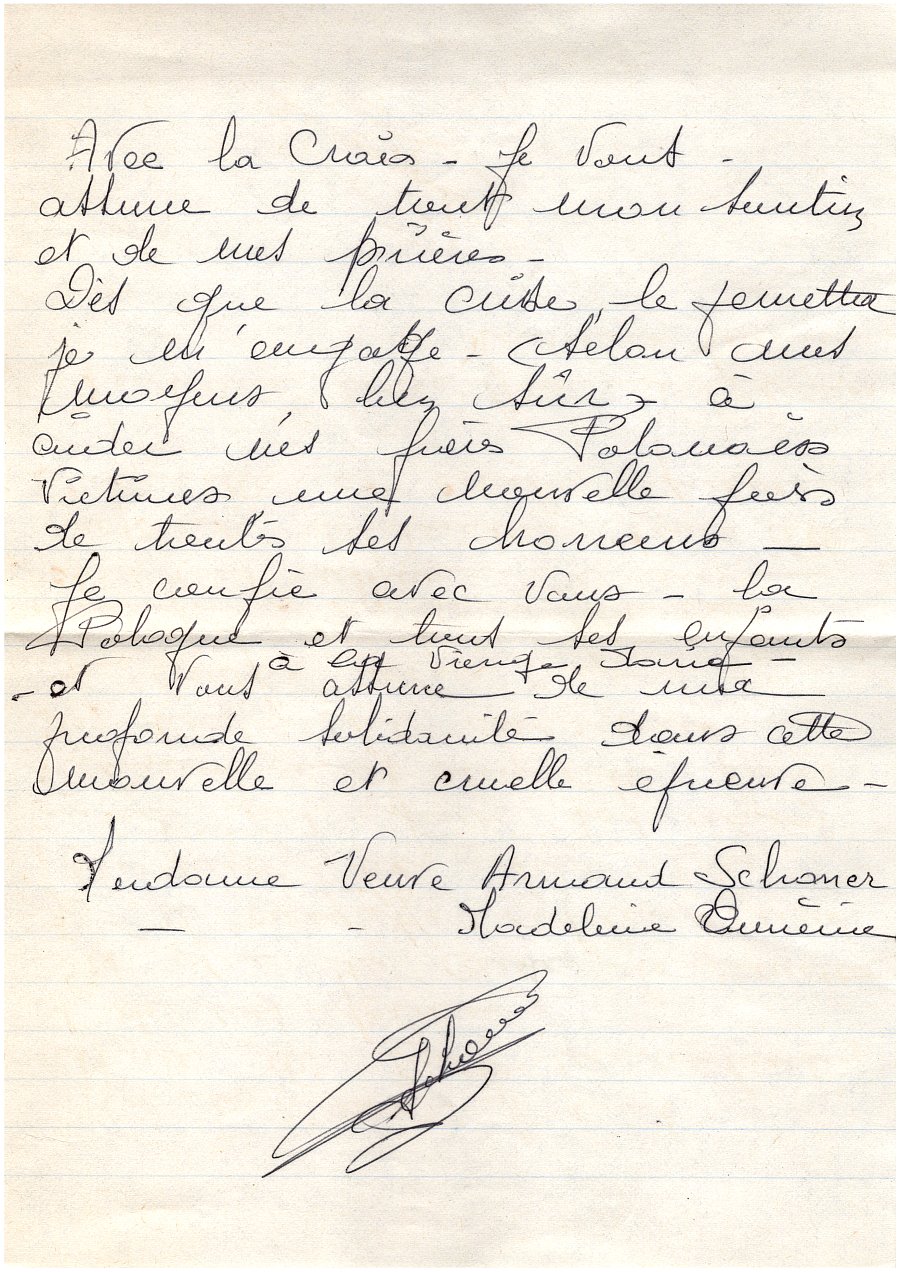 Avec la Croix - Je vous -
assure de tout mon soutien
et de mes prières -
Dès que la crise, le permettra
je m'engage - selon mes
moyens, bien sûr - à
aider nos frères Polonais
Victimes une nouvelle fois
de toutes ses horreurs —
Je confie avec vous - la
Pologne et tous ses enfants
à la Vierge Marie -
- et vous assure de ma
profonde solidarité dans cette
nouvelle et cruelle épreuve -
Madame Veuve Armand Schoner
— - Madeleine